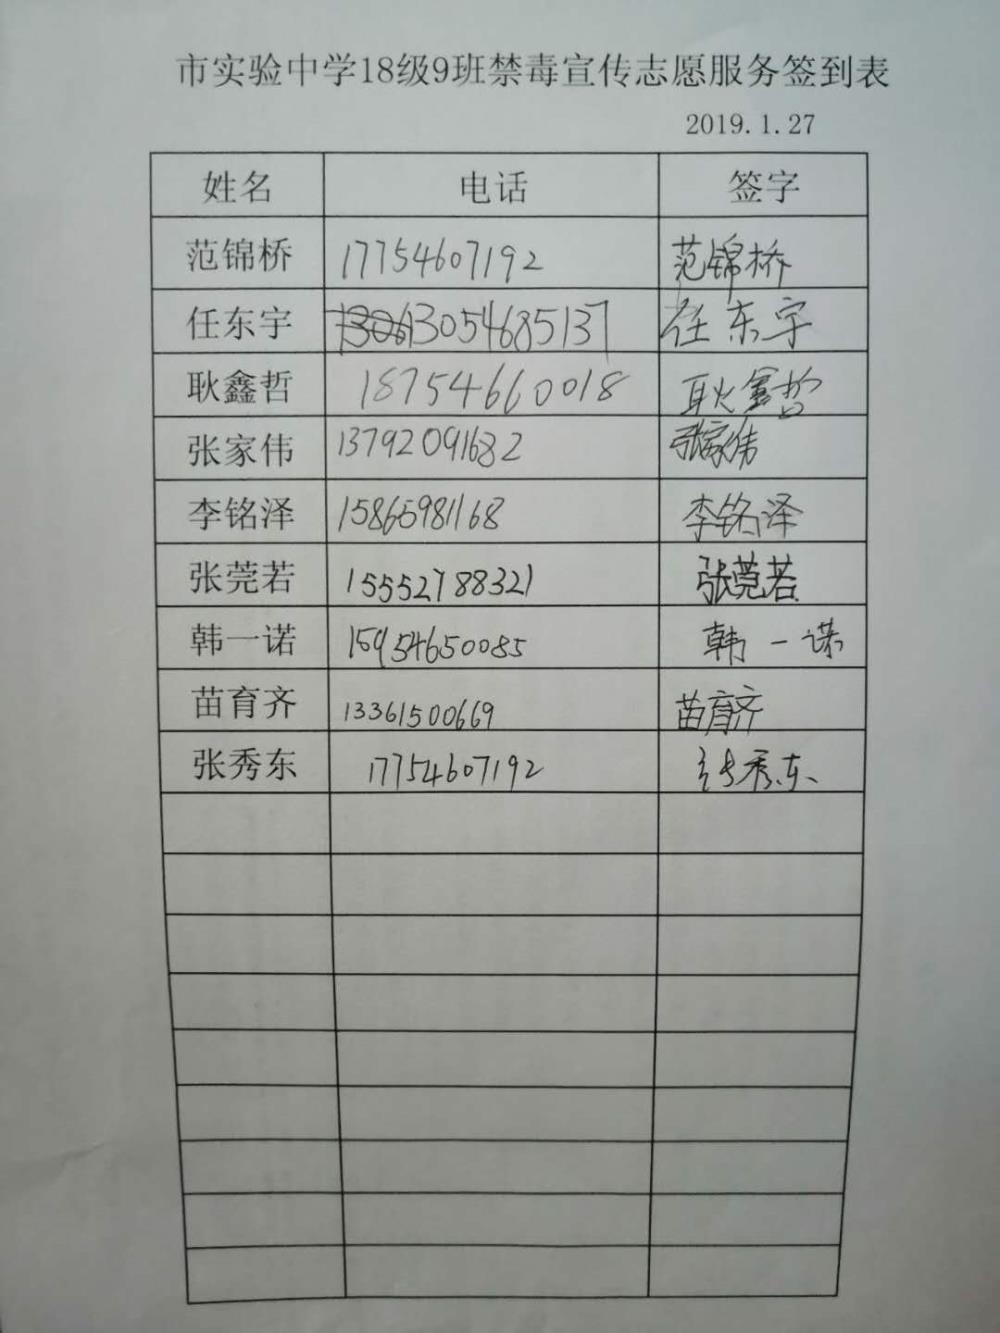 市实验中学18级9班禁毒宣传志愿服务签到表
2019.1.27
姓名 电话 签字
范锦桥 17754607192 范锦桥
任东宇 13054685137 任东宇
耿鑫哲 18754660018 耿鑫哲
张家伟 13792091682 张家伟
李铭泽 15865981168 李铭泽
张莞若 15552788321 张莞若
韩一诺 15954650085 韩一诺
苗育齐 13361500669 苗育齐
张秀东 17754607192 张秀东